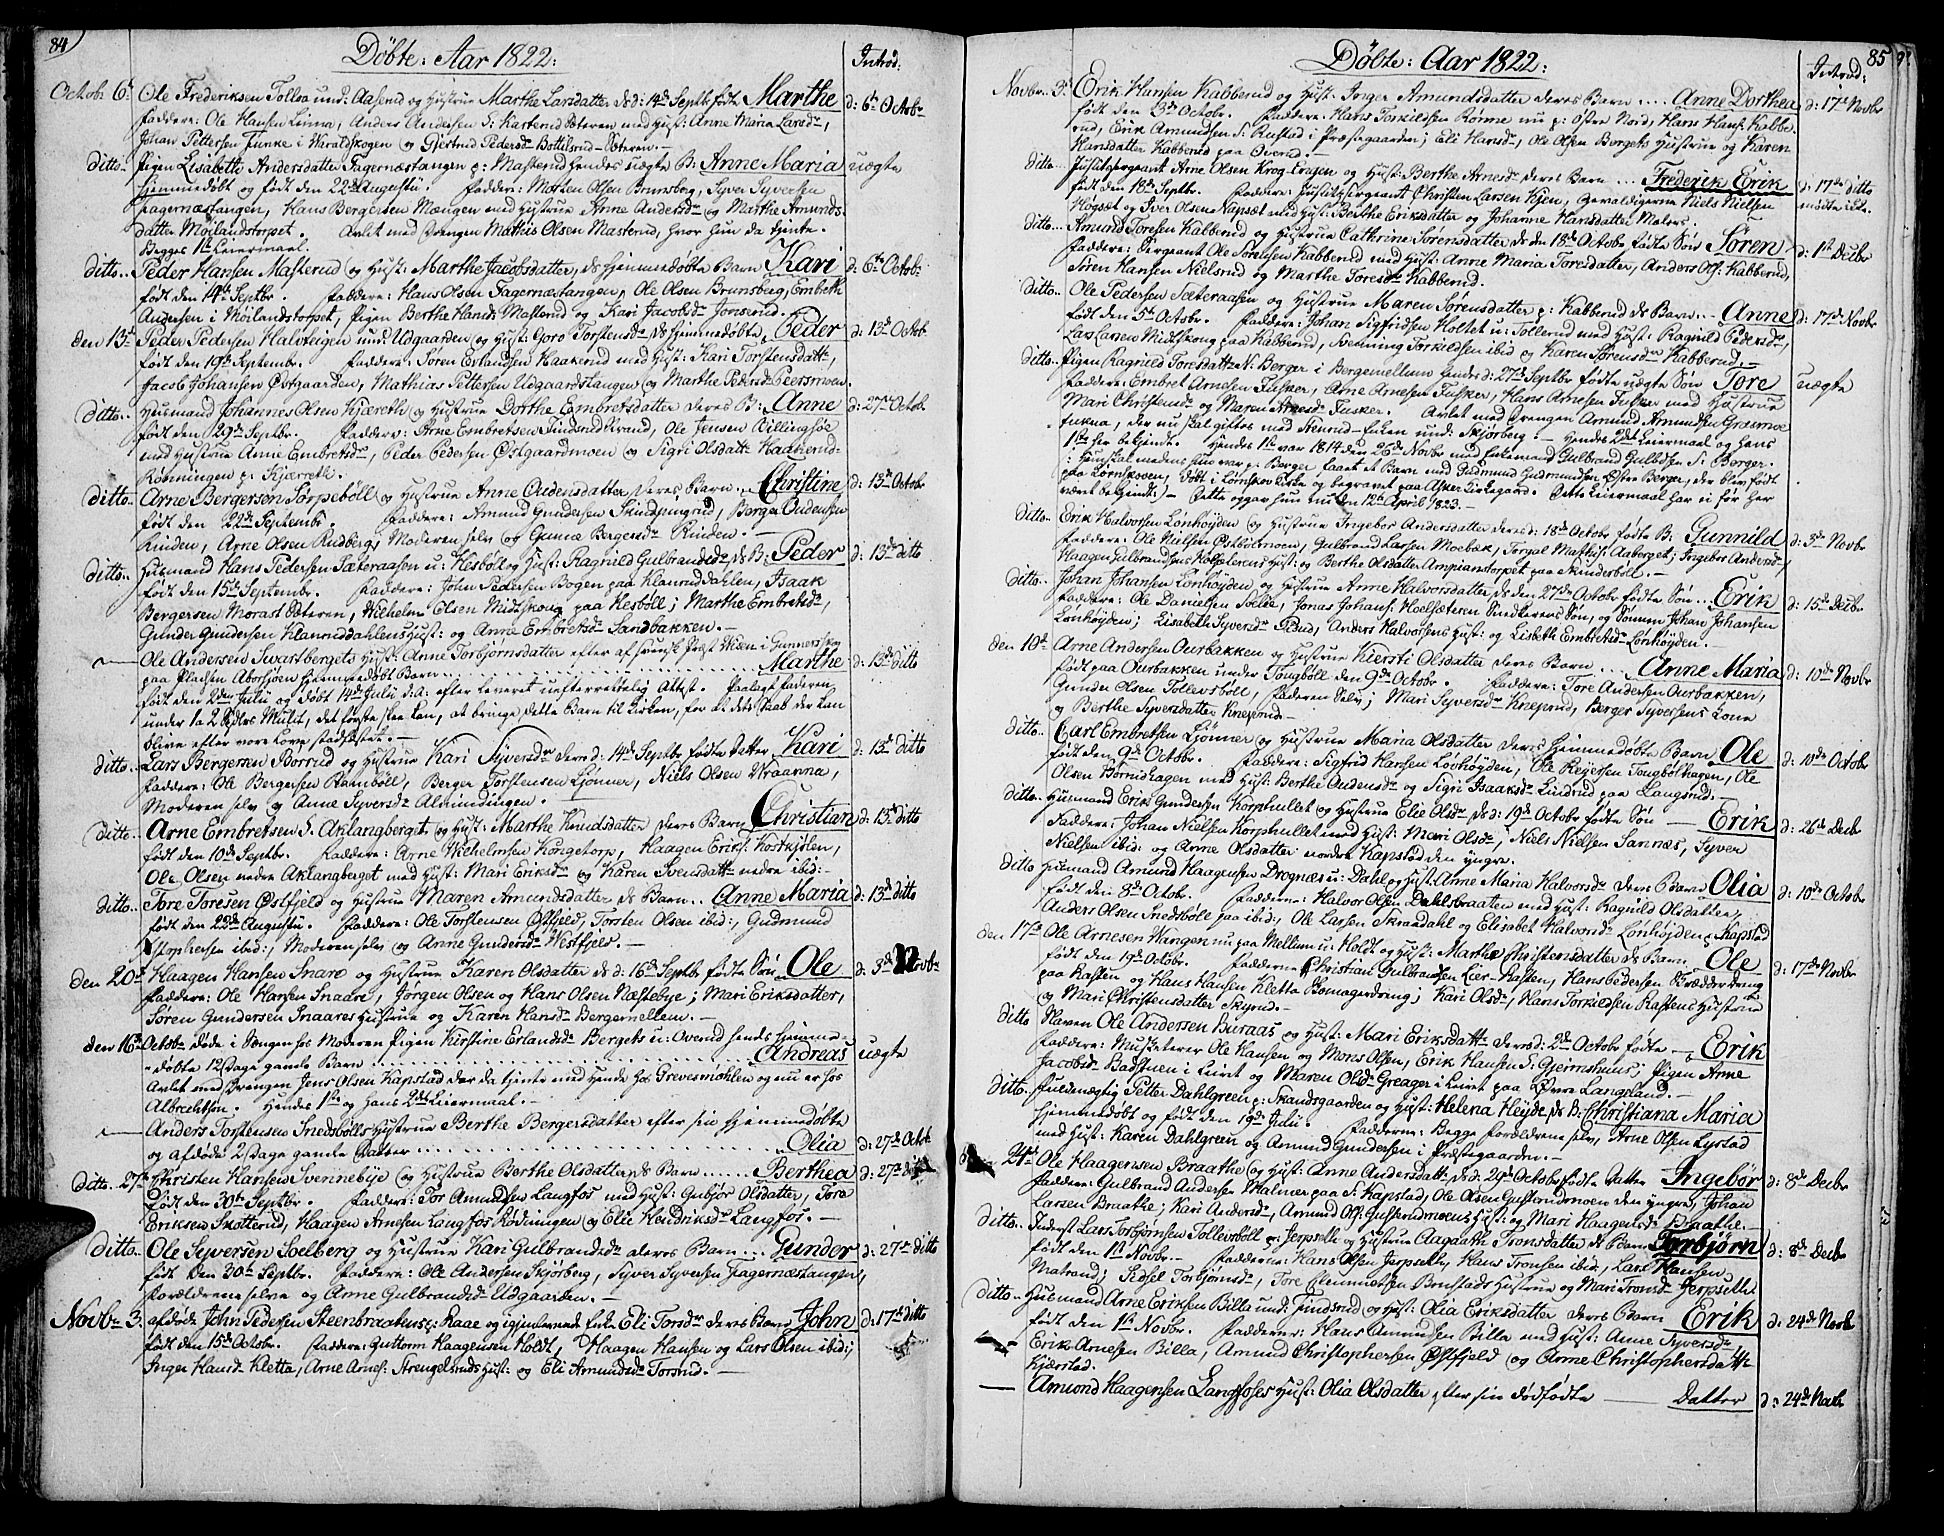 84
Döbte: Aar 1822: Introd:
Octobr 6te Ole Frederiksen Tollsa und: Aasend og Hustrue Marthe Larsdatter ds d: 14de Septbr födte Marthe d: 6te Octobr
Faddere: Ole Hansen Linna, Anders Andersen S: Karterud Sæteren med Hust: Anne Maria Larsdr,
Johan Pettersen Funke i Hiraldskogen og Gjertrud Pedersdr Bottilsrud-Sæteren.-
ditto.. Pigen Lisabeth Andersdatter Fagernæstangen p: Masterud hendes uægte B: Anne Maria uægte
Hjemmedöbt og födt den 22de Augusti. Faddere: Morten Olsen Brunsberg, Syver Syversen
Fagernæstangen, Hans Bergersen Mængen med Hustrue Anne Andersdr og Marthe Amunds-
datter Möilandstorpet. Avlet med Drengen Mathis Olsen Masterud, hvor hun da tjente.
Begges 1ste Leiermaal.
ditto.. Peder Hansen Masterud og Hust: Marthe Jacobsdatter, ds Hjemmedöbte Barn Kari d: 6te Octob:
födt den 14de Septbr. Faddere: Hans Olsen Fagernæstangen, Ole Olsen Brunsberg, Embreth
Andersen i Möilandstorpet, Pigen Berthe Hansdr Masterud og Kari Jacobsdr Jonsrud.
den 13de Peder Pedersen Halvteigen und: Udgaarden og Hust: Goro Torstensdr ds Hjemmedöbte Peder d: 13de Octobr
födt den 19de Septembr. Faddere: Sören Erlandsen Haakerud med Hust: Kari Torstensdatt:,
Jacob Johansen Östgaarden, Mathias Pettersen Udgaardstangen og Marthe Pedersdr Peersmoen.
ditto.. Husmand Johannes Olsen Kjærreth og Hustrue Dorthe Embretsdatter deres B: Anne d: 27de Octobr
födt den 29de Septbr. Faddere: Arne Embretsen Findsrud, Ole Jensen Billingsöe
med Hustrue Anne Embretsdr, Peder Pedersen Östgaardmoen og Sigri Olsdatt: Haakerud-
Rönningen p: Kjærreth.
ditto.. Arne Bergersen Sorpeböll og Hustrue Anne Oudensdatter deres Barn.. Christine d: 13de Octobr
födt den 22de Septembr. Faddere: Amund Gundersen Skindpungrud, Berger Oudensen
Rinden, Arne Olsen Rudberg, Moderen selv og Gunne Bergersdr Rinden.
ditto.. Husmand Hans Pedersen Sæteraasen u: Hesböl og Hust: Ragnild Gulbrandsdr ds B: Peder d: 13de ditto
födt den 15de Septembr. Faddere: John Pedersen Bogen paa Klanruddahlen, Isaak
Bergersen Morast Sæteren, Wilhelm Olsen Midtskong paa Hesböll; Marthe Embretsdr,
Gunder Gundersen Klanruddahlens Hust: og Anne Embretsdr Sandbakken.-
Ole Andersen Svartbergets Hust: Anne Torbjörnsdatter efter af svensk Præst Widen i Gunnerskog
paa Pladsen Aborsjöen Hjemmedöbt Barn .......... Marthe d: 13de ditto
födt den 2den Julii og döbt 14de Julii d:A: efter leveret uefterrettelig Attest. Paalagt Faderen
under 1 a 2 Spdrs Mulct, det förste skee kan, at bringe dette Barn til Kirken, for at dets Daab der kan
blive efter vore Love stadfæstet.-
ditto.. Lars Bergersen Borrud og Hustrue Kari Syversdr deres d: 14de Septbr födte Datter Kari d: 13de ditto
Faddere: Ole Bergersen Ramböll, Berger Torstensen Ljönner, Niels Olsen Wraanna,
Moderen selv og Anne Syversdr Almindingen.
ditto.. Arne Embretsen S. Aklangberget og Hust: Marthe Knudsdatter deres Barn Christian d: 13de ditto
födt den 10de Septbr. Faddere: Arne Wilhelmsen Kongetorp, Haagen Eriks: Kostkjölen,
Ole Olsen nedre Aklangberget med Hust: Mari Eriksdr og Karen Svensdatt: nedre ibid:-
ditto.. Tore Toresen Östfjeld og Hustrue Maren Amundsdatter ds Barn.. Anne Maria d: 13de ditto
födt den 22de Augusti. Faddere: Ole Torstensen Östfjeld, Torsten Olsen ibid:, Gudmund
Stophersen ibid:, Moderen selv og Anne Gundersdr Westfjeld.-
den 20de Haagen Hansen Snare og Hustrue Karen Olsdatter ds d: 16de Septbr födte Sön Ole d: 3de Novbr
Faddere: Ole Hansen Snaare, Jörgen Olsen og Hans Olsen Næstebye; Mari Eriksdatter,
Sören Gundersen Snaares Hustrue og Karen Hansdr Bergermellem.-
den 16de Octobr döde i Sængen hos Moderen Pigen Kirstine Erlandsdr Bergets u: Overud hends Hjemme-
-döbte 12 Dage gamle Barn .......... Andreas uægte
Avlet med Drengen Jens Olsen Kapstad der da tjente med Hende hos Grevesmöhlen og nu er hos
Albrechtsen. Hendes 1ste og Hans 2det Leiermaal.-
Anders Torstensen Snedsbölls Hustrue Berthe Bergersdatter efter sin Hjemmedöbte
og afdöde 2 Dage gamle Datter .......... Olia d: 27de Octob
ditto 27de Christen Hansen Svennebye og Hustrue Berthe Olsdatter ds Barn ..... Berthea d: 27de ditto
födt den 30te Septbr. Faddere: Tor Amundsen Langfos med Hust: Gubjör Olsdatter, Tore
Eriksen Skotterud, Haagen Arnesen Langfos Rödningen og Elie Hendriksdr Langfos.-
ditto.. Ole Syversen Soelberg og Hustrue Kari Gulbrandsdr deres Barn ... Gunder d: 27de ditto
födt den 30te Septbr. Faddere: Ole Andersen Skjörberg, Syver Syversen Fagernæstangen,
Forældrene selve og Anne Gulbrandsdr Udgaarden.-
Novbr 3. afdöde John Pedersen Steenbraatens p: Raae og igjenlevende Enke Eli Torsdr deres Barn John d: 17de ditto
födt den 15de Octobr. Faddere: Guttorm Haagensen Holdt, Haagen Hansen og Lars Olsen ibid;
Inger Hansdr Kletta, Arne Arnes: Strengelsruds Hust: og Eli Amundsdr Torsrud.-
85
Döbte: Aar 1822: Introd:
Novbr.. 3de Erik Hansen Kabberud og Hust: Inger Amundsdatter deres Barn .... Anne Dorthea d: 17de Novbr
födt den 3de Octobr. Faddere: Hans Torkildsen Romne nu p: Östre Nord, Hans Hans: Kabbe-
rud, Erik Amundsen S: Rustad i Præstgaarden; Eli Hansdr, Ole Olsen Bergets Hustrue og Karen
Hansdatter Kabberud paa Overud.-
ditto.. Justitssergeant Arne Olsen Krog-Eragen og Hust: Berthe Arnesdr deres Barn ... Frederik Erik d: 17de ditto
födt den 18de Septbr. Faddere: Justitssergeant Christen Larsen Kjen, Gevaldigeren Niels Nielsen mödte ikke.
Högsæt og Iver Olsen Napset med Hust: Berthe Eriksdatter og Johanne Hansdatter Malers.
ditto... Amund Toresen Kabberud og Hustrue Cathrine Sörensdatter ds den 18de Octobr födte Sön Sören d: 1ste Decbr
Faddere: Sergeant Ole Sörensen Kabberud med Hust: Anne Maria Toresdatter, Anders Ols: Kabberud,
Sören Hansen Nielsrud og Marthe Toresdr Kabberud.
ditto.. Ole Pedersen Sæteraasen og Hustrue Maren Sörensdatter p: Kabberud ds Barn:- Anne d: 17de Novbr
födt den 5te Octobr. Faddere: Johan Sigfridsen Holtet u: Tollerud med Hust: Ragnild Pedersdr,
Lars Larsen Midtskong paa Kabberud, Svenning Torkildsen ibid og Karen Sörensdr Kabberud.-
ditto.. Pigen Ragnild Toresdatter N: Berger i Bergemellem hendes d: 27de Septbr födte uægte Sön Tore uægte
Faddere: Embret Arnesen Fusker, Arne Arnesen Fusker, Hans Arnesen Fusker med Hustrue
Mari Christensdr og Maren Arnesdr Fusker. Avlet med Drengen Amund Amundsen Græsmoe
fukna, der nu skal giftes med Neurud-Enken und: Skjörberg.- Hendes 2det Leiermaal og hans
1ste her bekjendt. Hendes 1ste var 1814 den 26de Novbr med Enkemand Gulbrand Gulbdsen S: Berger.
: Hun skal medens hun var p: Berger faaet et Barn med Gudmund Gudmundsen Östre Berger, der blev födt
paa Lörnskoven, döbt i Lörnskov Kirke og begravet paa Asker Kirkegaard. Dette Leiermaal har ei för her
været bekjendt:)- Dette opgav hun nu den 12te April 1823.-
ditto.. Erik Halvorsen Lönhöyden og Hustrue Ingebor Andersdatter deres d: 18de Octobr födte B: Gunnild d: 3de Novbr
Faddere: Ole Nielsen Östbölmoen, Gulbrand Larsen Moebæk, Torgal Mathis: Aaberget; Ingebor Andersdr,
Haagen Gulbrandsens Hust: og Berthe Olsdatter Ampianstorpet paa Skinderböll.-
ditto.. Johan Johansen Lönhöyden og Hustrue Anne Halvorsdatter ds den 27de Octobr födte Sön.. Erik d: 15de Decbr
Faddere: Ole Danielsen Solie, Jonas Johans: Hoelsæteren Smedkarens Sön, og Sönnen Johan Johansen
Lönhöyden; Lisabeth Syversdr Böud, Anders Halvorsens Hust: og Lisbeth Embretsdr Lönhöyden.-
den 10de Arne Andersen Ourbakken og Hustrue Kiersti Olsdatter deres Barn ... Anne Maria d: 10de Novbr
födt paa Ourbakken under Tougböll den 9de Octobr. Faddere: Tore Andersen Ourbakken,
Gunder Olsen Tollevsböll, Faderen Selv; Mari Syversdr Kneprud, Berger Syversens Kone
og Berthe Syversdatter Kneprud.-
ditto.. Carl Embretsen Ljönner og Hustrue Maria Olsdatter deres Hjemmedöbte Barn Ole d: 10de Octobr
födt den 9de Octobr. Faddere: Sigfrid Hansen Lovhöyden, Ole Reyersen Tougbölhagen, Ole
Olsen Börndhagen med Hust: Berthe Oudensdr og Sigri Isaaksdr Lindrud paa Laugsrud.-
ditto.. Husmand Erik Gundersen Korphullet og Hustrue Elie Olsdr ds d: 19de Octobr födte Sön - Erik d: 26de Decbr
Faddere: Johan Nielsen Korphullet med Hust: Mari Olsdr, Niels Nielsen Sannæs, Syver
Nielsen ibid: og Anne Olsdatter nordre Kapstad den yngre.
ditto Husmand Amund Haagensen Drognæs u: Dahl og Hust: Anne Maria Halvorsdr deres Barn Olia d: 10de Octobr
födt den 8de Octobr. Faddere: Halvor Olsen Dahlsbraaten med Hust: Ragnild Olsdatter,
Anders Olsen Snedsböll paa ibid:, Ole Larsen Skraadahl og Elisabet Halvorsdr Lönhöyden p: Kapstad
den 17de Ole Arnesen Wangen nu paa Mellum u: Holdt og Hust: Marthe Christensdatter ds Barn.. Ole d: 17de Novbr
födt den 19de Octobr. Faddere: Christian Gulbrandsen Lier-Kasten, Hans Pedersen Brædderdreng
paa Kasten og Hans Hansen Kletta Bömagerdreng; Kari Olsdr, Hans Torkildsen Rastens Hustrue
og Mari Christensdatter Skyrud.-
ditto Slaven Ole Andersen Buraas og Hust: Mari Eriksdatt: deres d: 2de Octobr födte - Erik
Faddere: Musketerer Ole Hansen og Mons Olsen, Erik Hansen S: Gjernshuus; Pigen Anne
Jacobsdr Badstuen i Leiret og Maren Olsdr Greager i Leiret paa Övre Langeland.-
ditto. Fuldmægtig Petter Dahlgreen p: Skandsgaarden og Hust: Helena Heyde, ds B: Christiana Maria
Hjemmedöbt og födt den 19de Julii. Fadderne: Begge Forældrene selv, Arne Olsen Lystad
med Hust: Karen Dahlgreen og Amund Gundersen i Præstegaarden.-
24de Ole Haagensen Braathe og Hust: Anne Andersdatt: ds den 29de Octobr födte Datter Ingebör d: 8de Decbr
Faddere: Gulbrand Andersen Malmer paa S: Kapstad, Ole Olsen Gustorudmoen den yngre, Johan
Larsen Braathe; Kari Andersdr, Amund Ols: Gulsterudmoens Hust: og Mari Haagensdr Braathe.-
ditto. Inderst Lars Torbjörnsen Tollevsböll p: Jerpseth og Hustrue Aagaathe Tronsdatter ds Barn Torbjörn d: 8de Decbr
födt den 11 Novbr. Fadderne: Hans Olsen Jerpseth, Hans Tronsen ibid, Lars Hansen
Matrand; Sidsel Torbjörnsdr, Tore Clemmetsen Brustads Hustrue og Mari Tronsdr Jerpseth.-
ditto.. Husmand Arne Eriksen Billa und: Findsrud og Hust: Olia Eriksdatter deres Barn Erik d: 24de Novbr
födt den 1ste Novbr. Faddere: Hans Amundsen Billa med Hust: Anne Syversdr
Erik Arnesen Billa, Amund Christophersen Östfjeld og Anne Christophersdatt:
Kjærstad.
Amund Haagensen Langfoses Hust: Olia Olsdatter efter sin dödfödte - Datter d: 24de Novbr